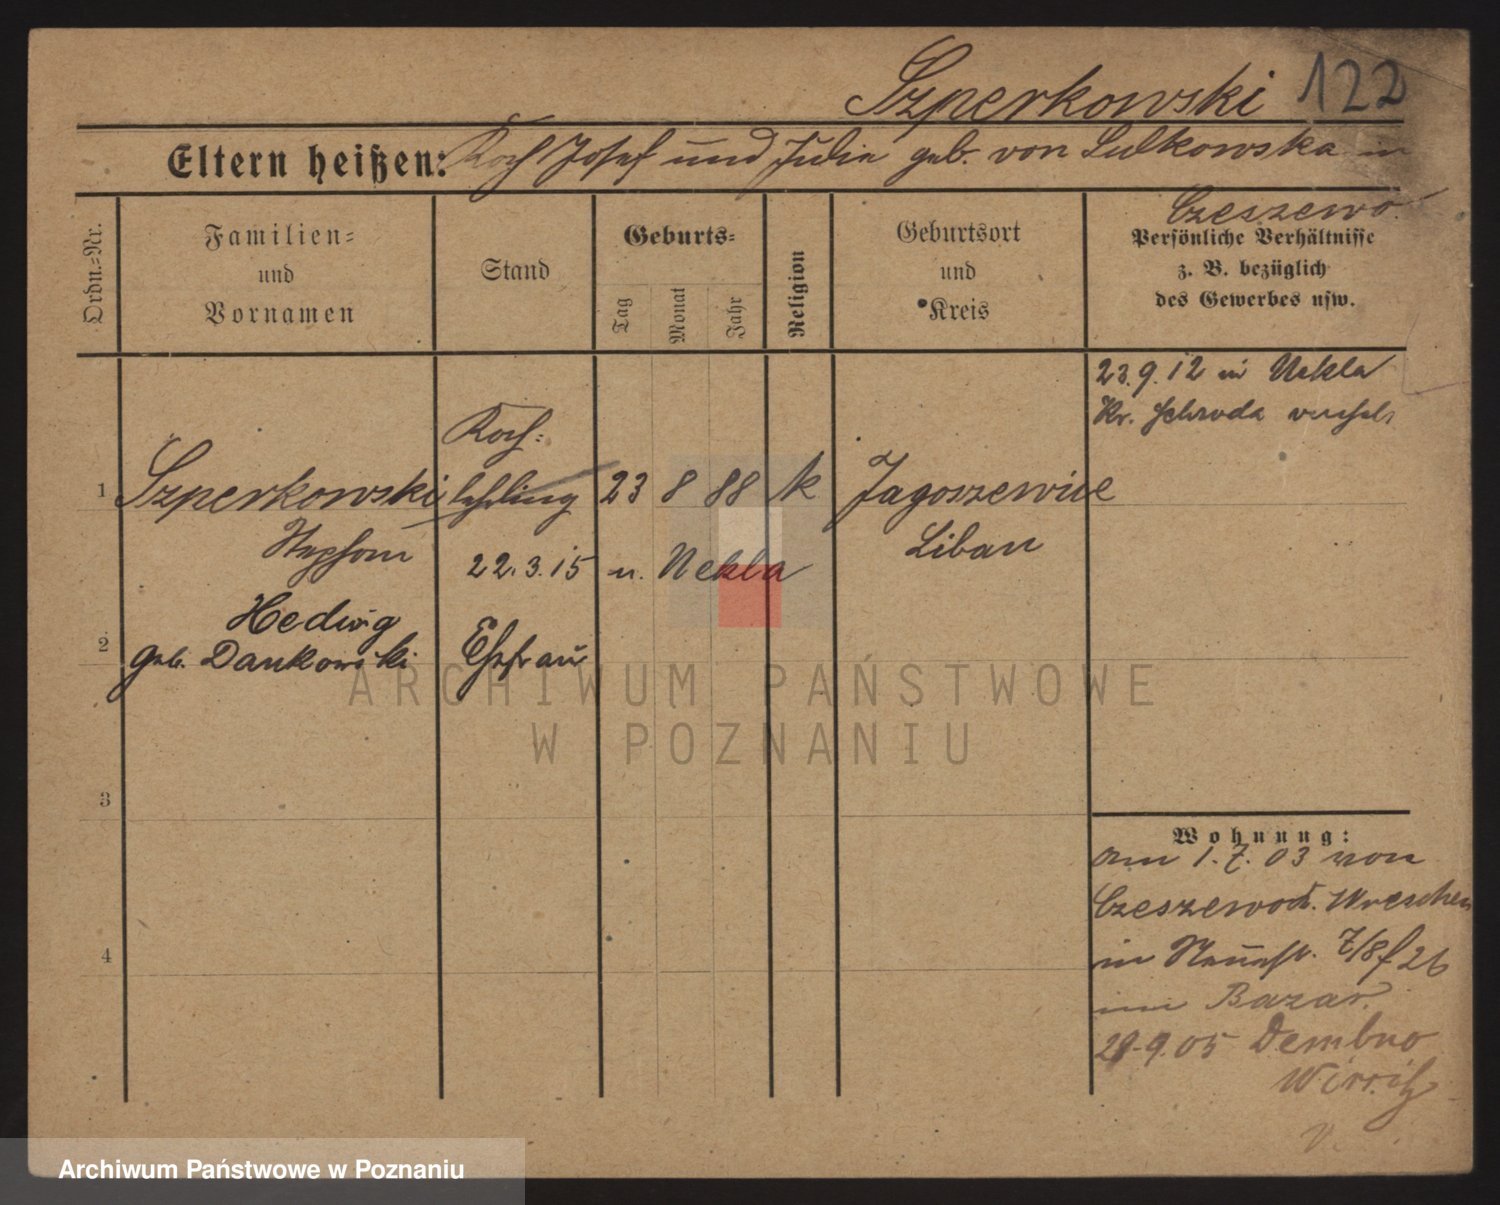 Szperkowski 122
Eltern heißen: Koch Josef und Julie geb. von Sulkowska in
Czeszewo.
Ordn.-Nr.
Familien-
und
Vornamen
Stand
Geburts-
Tag
Monat
Jahr
Religion
Geburtsort
und
Kreis
Persönliche Verhältnisse
z. B. bezüglich
des Gewerbes usw.
23.9.12 in Nekla
Kr. Schroda
Koch-
1 Szperkowski lehrling 23 8 88 k Jagoszewice
Stephan 22.3.15 n. Nekla Liban
Hedwig
2 geb. Dankowski Ehefrau
3
4
Wohnung:
am 1.7.03 von
Czeszewo Wreschen
in Neuestr. 7/8 f 26
im Bazar.
29.9.05 Dembno
Wirsitz
ARCHIWUM PAŃSTWOWE
W POZNANIU
Archiwum Państwowe w Poznaniu